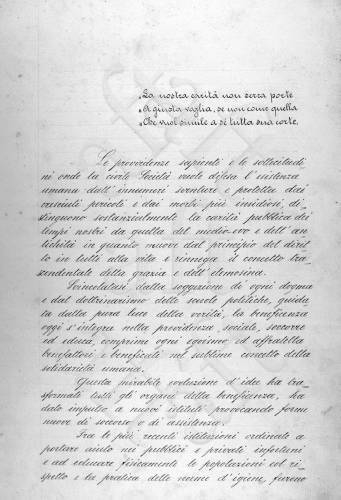 "La nostra carità non serra porte
"A giusta voglia, se non come quella
"Che vuol simile a sé tutta sua corte.
Le provvidenze sapienti e le sollecitudi
ni onde la civile Società vuole difesa l'esistenza
umana dall' innumeri sventure e protetta dai
cresciuti pericoli e dai morbi più insidiosi, di_
stinguono sostanzialmente la carità pubblica dei
tempi nostri da quella del medio-evo e dell' an
tichità in quanto muove dal principio del dirit
to in tutti alla vita e rinnega il concetto tra_
scendentale della grazia e dell' elemosina.
Svincolatasi dalla soggezione di ogni dogma
e dal dottrinarismo delle scuole politiche, guida
ta dalla pura luce della verità, la beneficenza
oggi s'integra nella previdenza sociale, soccorre
ed educa, comprime ogni egoismo ed affratella
benefattori e beneficati nel sublime concetto della
solidarietà umana.
Questa mirabile evoluzione d'idee ha tra_
sformati tutti gli organi della beneficenza, ha
dato impulso a nuovi istituti provocando forme
nuove di soccorso e di assistenza.
Fra le più recenti istituzioni ordinate a
portare aiuto nei pubblici e privati infortuni
e ad educare fisicamente le popolazioni col ri_
spetto e la pratica delle norme d'igiene, furono